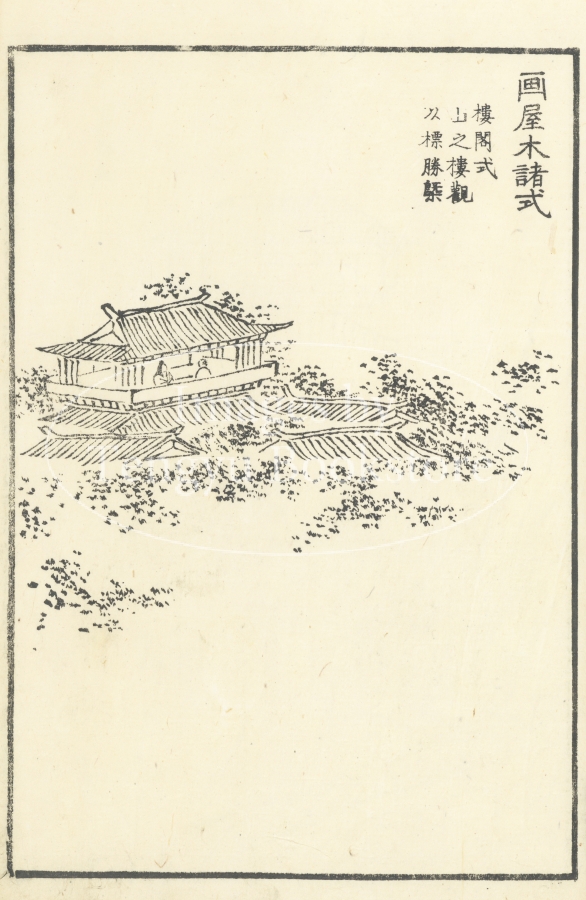 画屋木諸式
樓閣式
山之樓觀
以標勝槩
Images by
Tengyu Bookstore